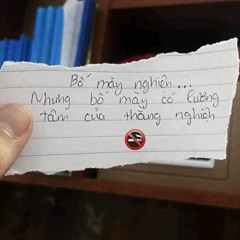 Bố mày nghiện...
Nhưng bố mày có lương
tâm của thằng nghiện